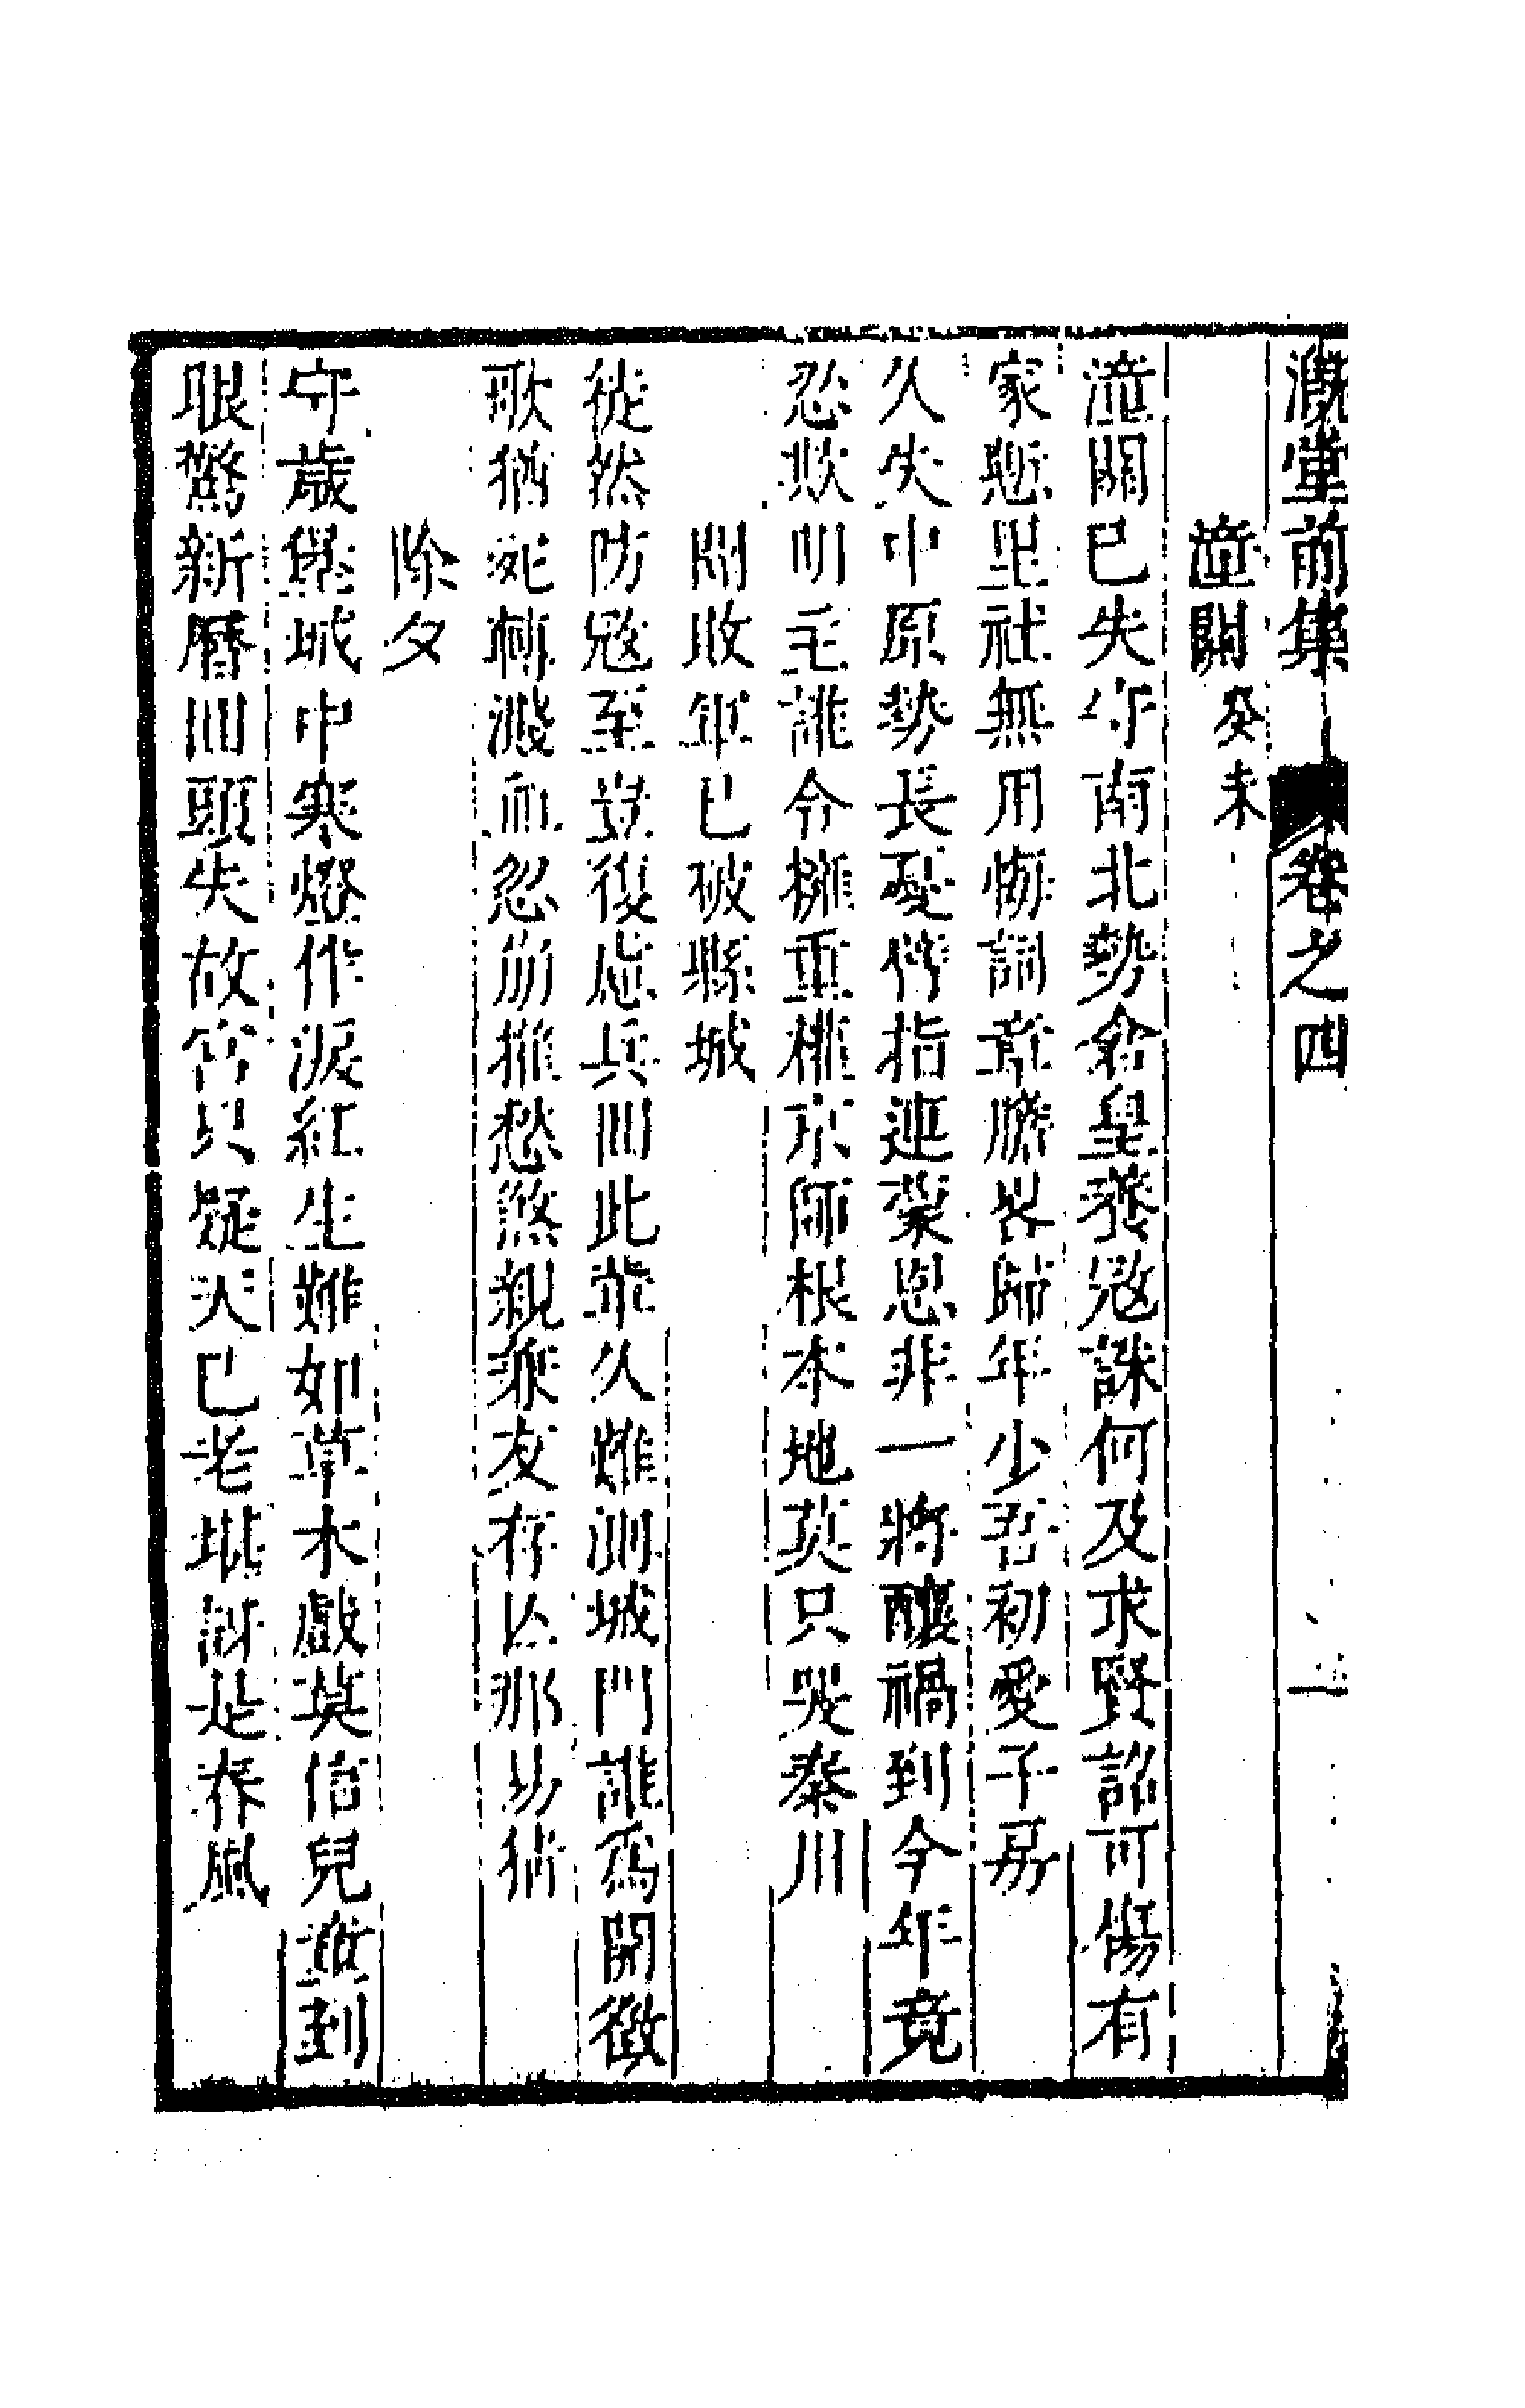 溉堂前集 卷之四 一
潼關 癸未
潼關已失守南北勢倉皇養寇誅何及求賢詔可傷有
家愁里社無用悔詞章膽畧歸年少吾初愛子房
久失中原勢長憂臂指連蒙恩非一將釀禍到今年竟
忍欺明主誰令擁重權京師根本地莫只哭秦川
聞敗軍已破縣城
徒然防寇至豈復慮兵回此輩久難測城門誰爲開徵
歌猶宛轉濺血忽崩摧愁煞親兼友存亡那易猜
除夕
守歲城中寒燈作淚紅生難如草木戲莫信兒童到
眼驚新曆回頭失故宮只疑天已老堪訝是春風